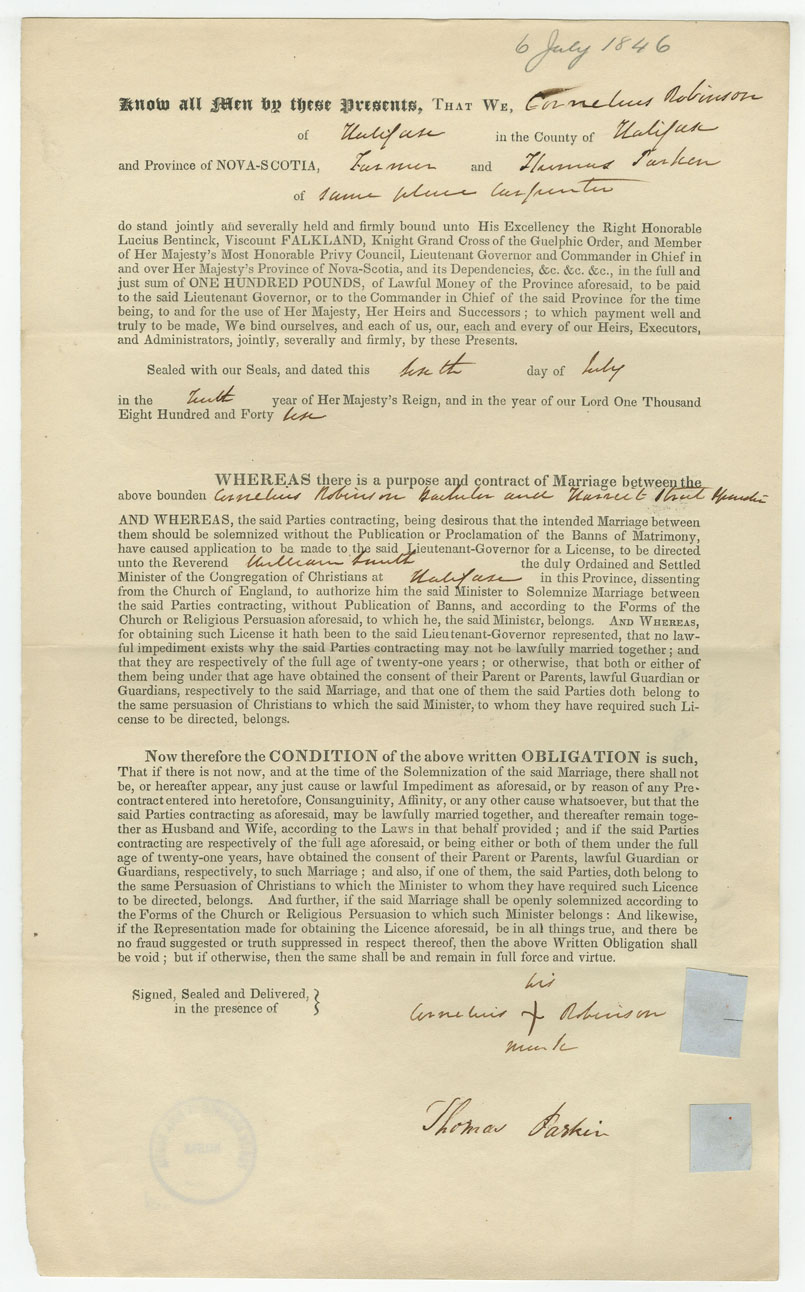 6 July 1846
Know all Men by these Presents, THAT WE, Cornelius Robinson
of Halifax in the County of Halifax
and Province of NOVA-SCOTIA, Farmer and Thomas Parken
of same place Carpenter
do stand jointly and severally held and firmly bound unto His Excellency the Right Honorable
Lucius Bentinck, Viscount FALKLAND, Knight Grand Cross of the Guelphic Order, and Member
of Her Majesty's Most Honorable Privy Council, Lieutenant Governor and Commander in Chief in
and over Her Majesty's Province of Nova-Scotia, and its Dependencies, &c. &c. &c., in the full and
just sum of ONE HUNDRED POUNDS, of Lawful Money of the Province aforesaid, to be paid
to the said Lieutenant Governor, or to the Commander in Chief of the said Province for the time
being, to and for the use of Her Majesty, Her Heirs and Successors ; to which payment well and
truly to be made, We bind ourselves, and each of us, our, each and every of our Heirs, Executors,
and Administrators, jointly, severally and firmly, by these Presents.
Sealed with our Seals, and dated this sixth day of July
in the Tenth year of Her Majesty's Reign, and in the year of our Lord One Thousand
Eight Hundred and Forty six
WHEREAS there is a purpose and contract of Marriage between the
above bounden Cornelius Robinson Bachelor and Harriet Spinster
AND WHEREAS, the said Parties contracting, being desirous that the intended Marriage between
them should be solemnized without the Publication or Proclamation of the Banns of Matrimony,
have caused application to be made to the said Lieutenant-Governor for a License, to be directed
unto the Reverend William Smith the duly Ordained and Settled
Minister of the Congregation of Christians at Halifax in this Province, dissenting
from the Church of England, to authorize him the said Minister to Solemnize Marriage between
the said Parties contracting, without Publication of Banns, and according to the Forms of the
Church or Religious Persuasion aforesaid, to which he, the said Minister, belongs. AND WHEREAS,
for obtaining such License it hath been to the said Lieutenant-Governor represented, that no law-
ful impediment exists why the said Parties contracting may not be lawfully married together ; and
that they are respectively of the full age of twenty-one years ; or otherwise, that both or either of
them being under that age have obtained the consent of their Parent or Parents, lawful Guardian or
Guardians, respectively to the said Marriage, and that one of them the said Parties doth belong to
the same persuasion of Christians to which the said Minister, to whom they have required such Li-
cense to be directed, belongs.
Now therefore the CONDITION of the above written OBLIGATION is such,
That if there is not now, and at the time of the Solemnization of the said Marriage, there shall not
be, or hereafter appear, any just cause or lawful Impediment as aforesaid, or by reason of any Pre-
contract entered into heretofore, Consanguinity, Affinity, or any other cause whatsoever, but that the
said Parties contracting as aforesaid, may be lawfully married together, and thereafter remain toge-
ther as Husband and Wife, according to the Laws in that behalf provided ; and if the said Parties
contracting are respectively of the full age aforesaid, or being either or both of them under the full
age of twenty-one years, have obtained the consent of their Parent or Parents, lawful Guardian or
Guardians, respectively, to such Marriage ; and also, if one of them, the said Parties, doth belong to
the same Persuasion of Christians to which the Minister to whom they have required such Licence
to be directed, belongs. And further, if the said Marriage shall be openly solemnized according to
the Forms of the Church or Religious Persuasion to which such Minister belongs : And likewise,
if the Representation made for obtaining the Licence aforesaid, be in all things true, and there be
no fraud suggested or truth suppressed in respect thereof, then the above Written Obligation shall
be void ; but if otherwise, then the same shall be and remain in full force and virtue.
Signed, Sealed and Delivered,
in the presence of
his
Cornelius + Robinson
mark
Thomas Parkin